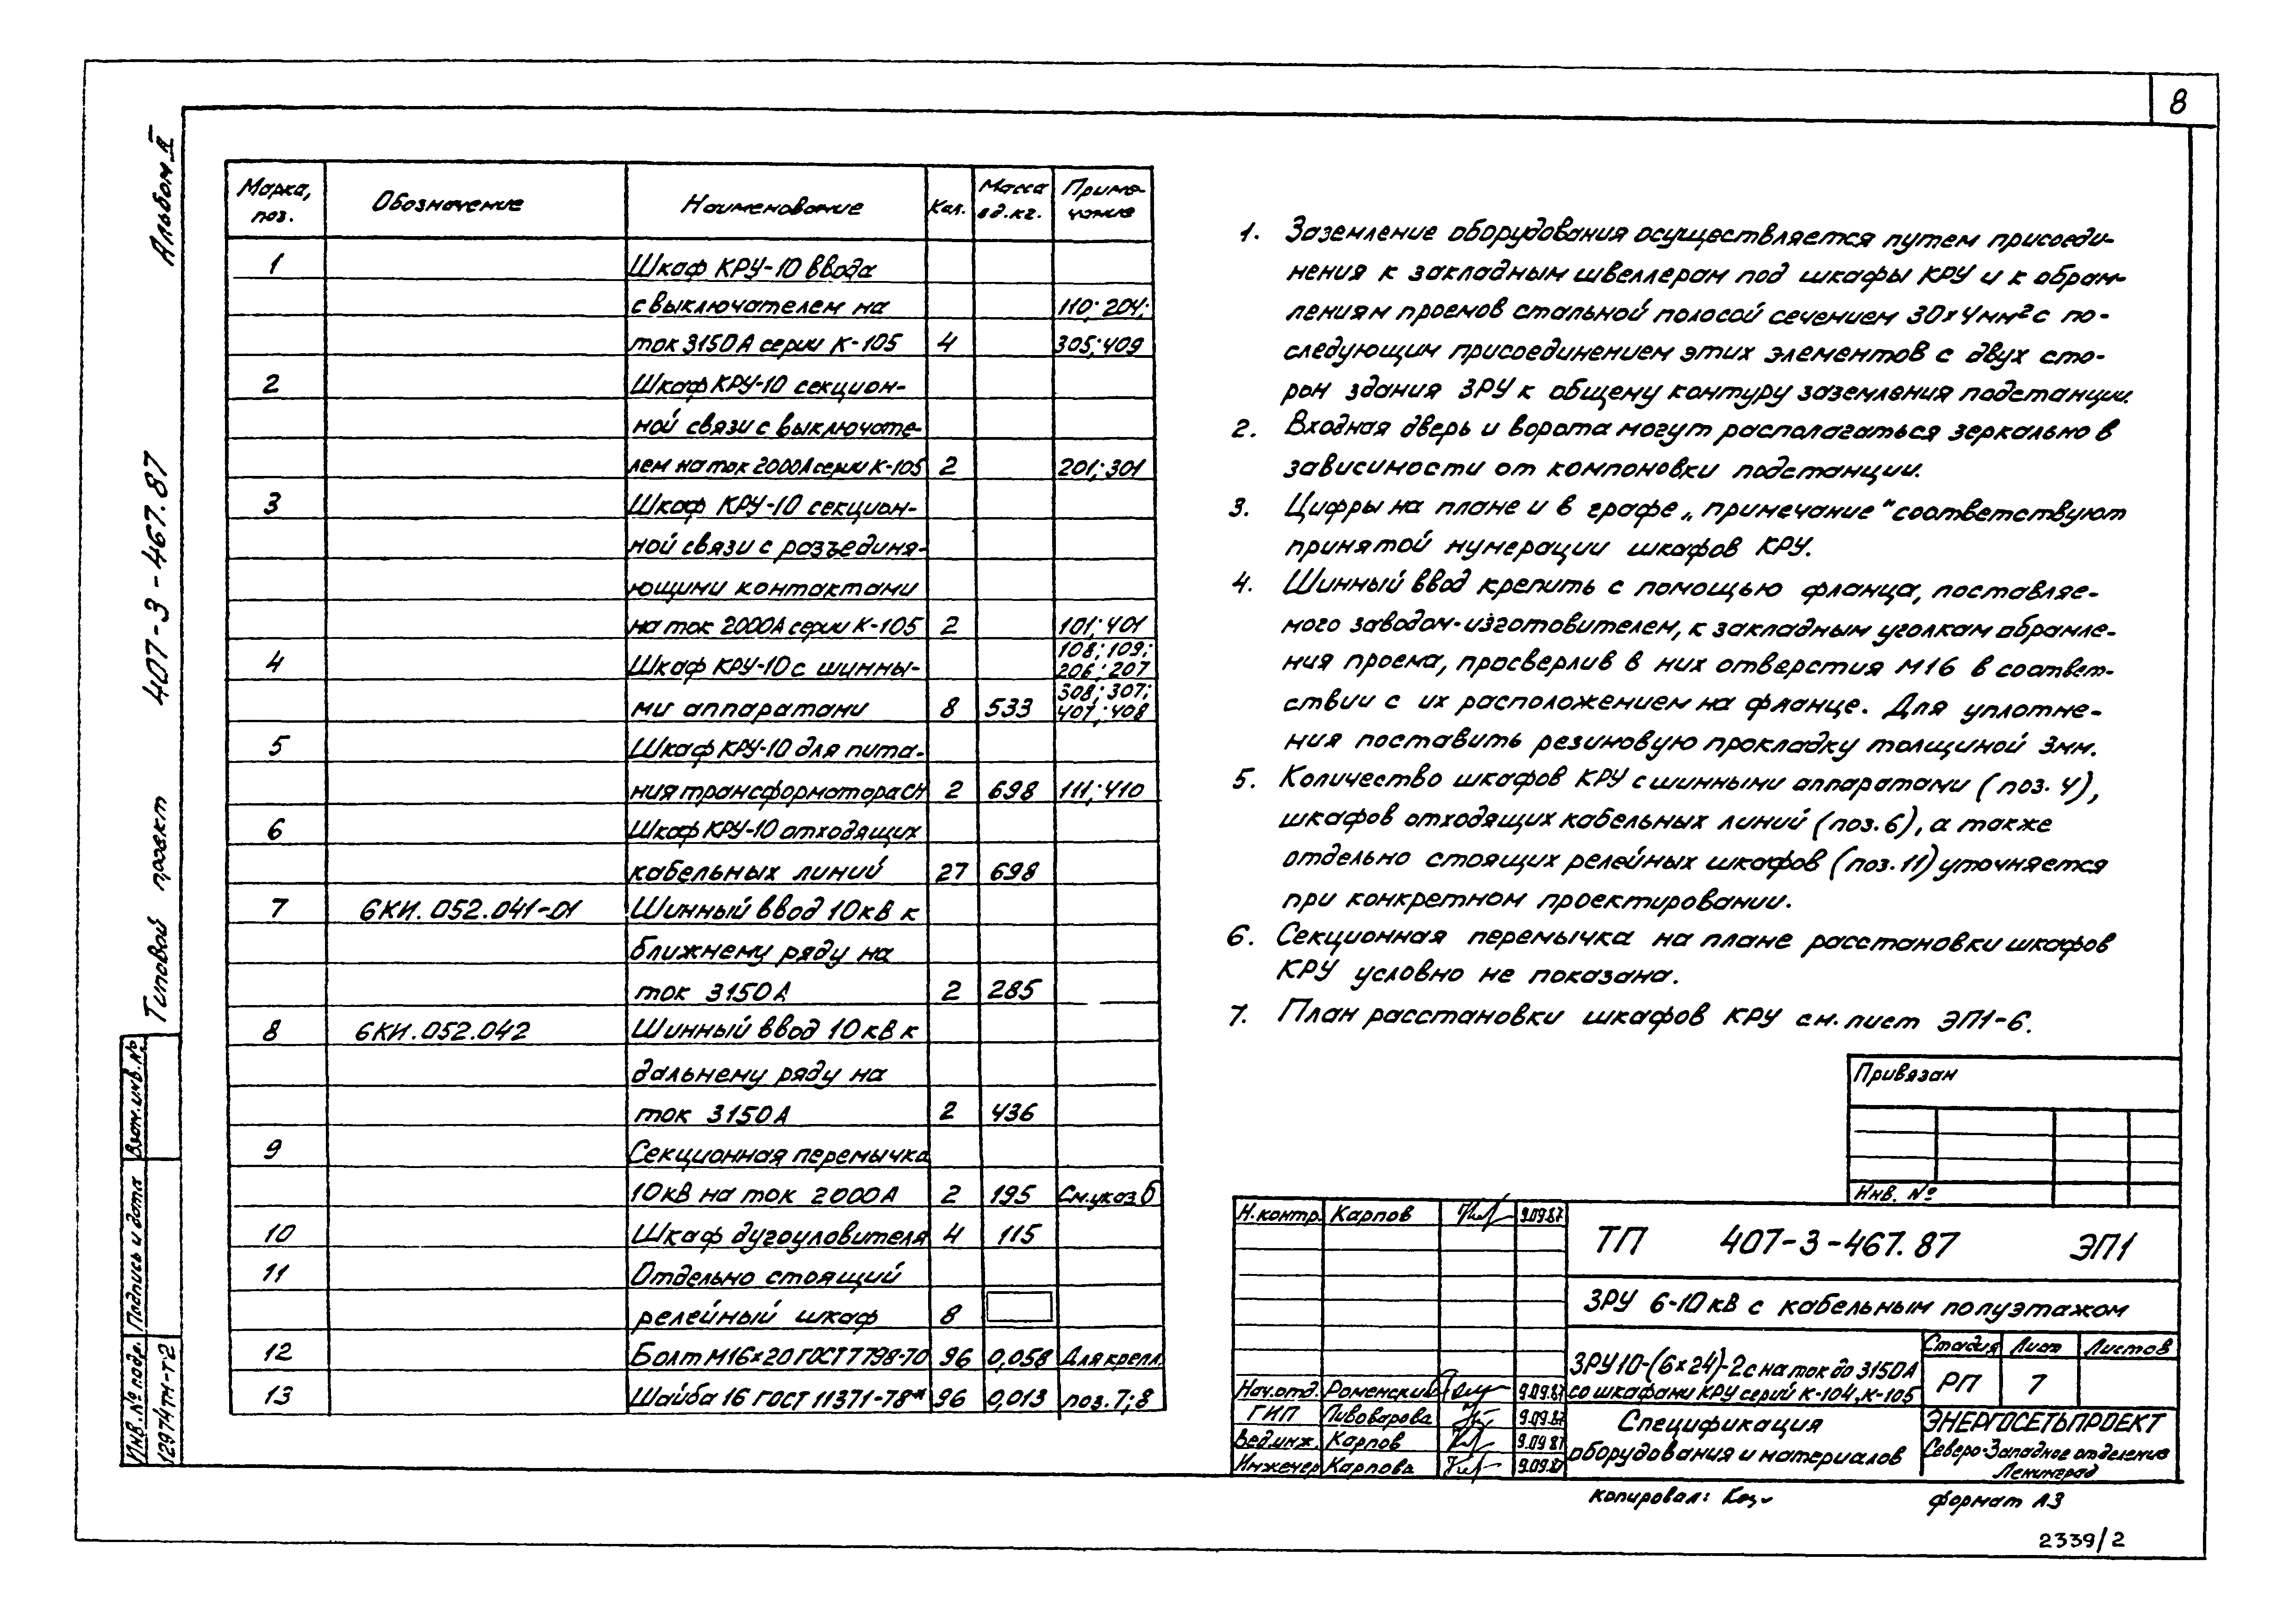 8
Альбом II
Типовой проект 407-3-467.87
Взам.инв.№
Подпись и дата
Инв.№ подл.
12974тм-т2
Марка, поз. Обозначение Наименование Кол. Масса ед.кг. Примечание
1 Шкаф КРУ-10 ввода
с выключателем на 110; 204;
ток 3150А серии К-105 4 305; 409
2 Шкаф КРУ-10 секцион-
ной связи с выключате-
лем на ток 2000А серии К-105 2 201; 301
3 Шкаф КРУ-10 секцион-
ной связи с разъединя-
ющими контактами
на ток 2000А серии К-105 2 101; 401
4 Шкаф КРУ-10 с шинны- 108; 109; 206; 207
ми аппаратами 8 533 308; 307; 407; 408
5 Шкаф КРУ-10 для пита-
ния трансформатора СН 2 698 111; 410
6 Шкаф КРУ-10 отходящих
кабельных линий 27 698
7 6КИ.052.041-01 Шинный ввод 10кВ к
ближнему ряду на
ток 3150А 2 285
8 6КИ.052.042 Шинный ввод 10кВ к
дальнему ряду на
ток 3150А 2 436
9 Секционная перемычка
10кВ на ток 2000А 2 195 См.указ.6
10 Шкаф дугоуловителя 4 115
11 Отдельно стоящий
релейный шкаф 8
12 Болт М16×20 ГОСТ 7798-70 96 0,058 Для крепл.
13 Шайба 16 ГОСТ 11371-78* 96 0,013 поз.7; 8
1. Заземление оборудования осуществляется путем присоеди-
нения к закладным швеллерам под шкафы КРУ и к обрам-
лениям проемов стальной полосой сечением 30×4мм² с по-
следующим присоединением этих элементов с двух сто-
рон здания ЗРУ к общему контуру заземления подстанции.
2. Входная дверь и ворота могут располагаться зеркально в
зависимости от компоновки подстанции.
3. Цифры на плане и в графе „примечание“ соответствуют
принятой нумерации шкафов КРУ.
4. Шинный ввод крепить с помощью фланца, поставляе-
мого заводом-изготовителем, к закладным уголкам обрамле-
ния проема, просверлив в них отверстия М16 в соответ-
ствии с их расположением на фланце. Для уплотне-
ния поставить резиновую прокладку толщиной 3мм.
5. Количество шкафов КРУ с шинными аппаратами (поз. 4),
шкафов отходящих кабельных линий (поз.6), а также
отдельно стоящих релейных шкафов (поз.11) уточняется
при конкретном проектировании.
6. Секционная перемычка на плане расстановки шкафов
КРУ условно не показана.
7. План расстановки шкафов КРУ см. лист ЭП1-6.
Привязан
Инв. №
Н.контр. Карпов 9.09.87
Нач.отд. Роменский 9.09.87
ГИП Пивоварова 9.09.87
Вед.инж. Карпов 9.09.87
Инженер Карпова 9.09.87
ТП 407-3-467.87 ЭП1
ЗРУ 6-10кВ с кабельным полуэтажом
ЗРУ10-(6×24)-2с на ток до 3150А
со шкафами КРУ серий К-104, К-105
Стадия Лист Листов
РП 7
Спецификация
оборудования и материалов
ЭНЕРГОСЕТЬПРОЕКТ
Северо-Западное отделение
Ленинград
копировал:
формат А3
2339/2